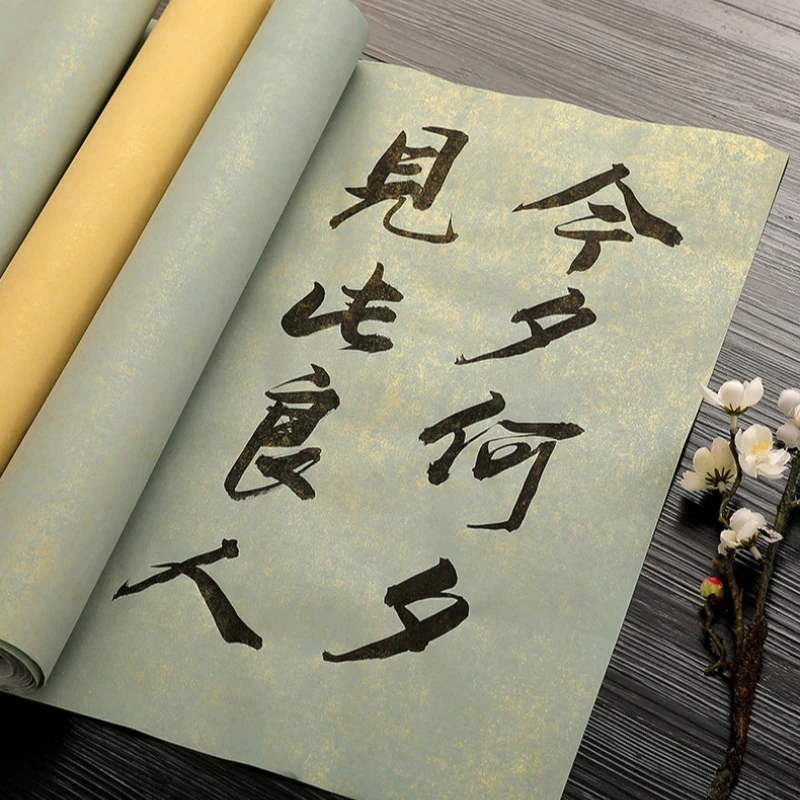 今夕何夕
見此良人